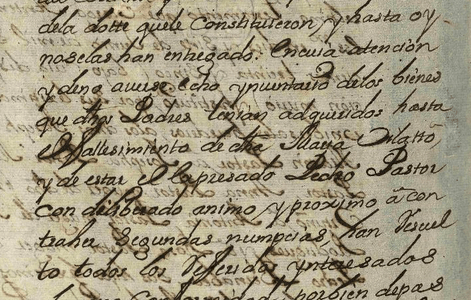 dela dotte quele Constituieron y hasta oy
noselas han entregado. Encuia atención
y deno averse echo ynventario delos bienes
que dhos Padres tenian adquiridos hasta
el fallesimiento de dha Maria
y de estar el Expresado Pedro Pastor
con deliberado animo y proximo â con
traher Segundas numpcias han Resuel
to todos los Referidos ynteresados
Conformidad por bien de pas